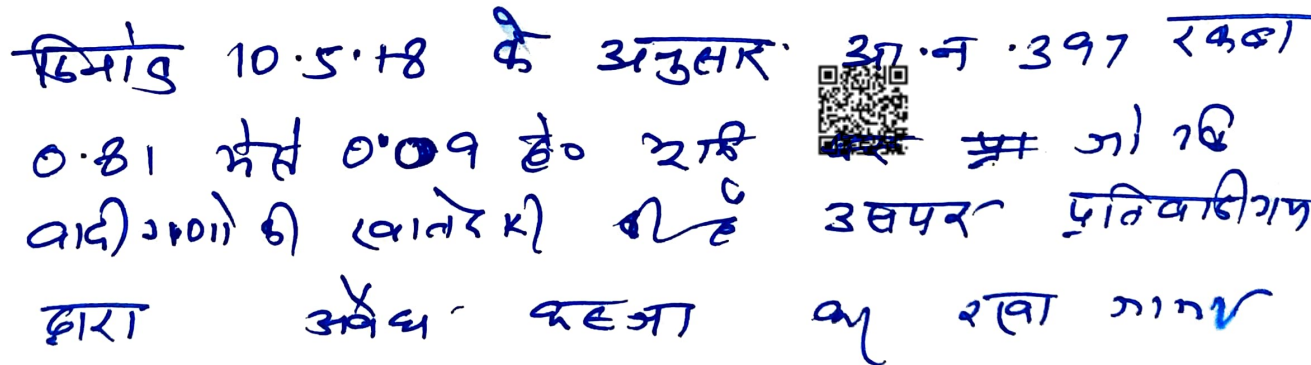 दिनांक 10.5.18 के अनुसार आ.न.397 रकबा
0.81 मेसे 0.09 है० भूमि जो कि
वादीगणो की खातेदारी की है उसपर प्रतिवादीगण
द्वारा अवैध कब्जा कर रखा